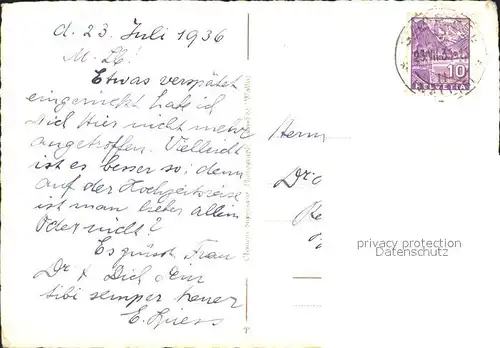 d. 23. Juli 1936
M. Lb!
Etwas verspätet
eingerückt hab ich
Dich hier nicht mehr
angetroffen. Vielleicht
ist es besser so; denn
auf der Hochzeitsreise
ist man lieber allein
Oder nicht?
Es grüsst Frau
Dr & Dich Dein
tibi semper
E.
Herrn
Dr.
10
HELVETIA
privacy protection
Datenschutz